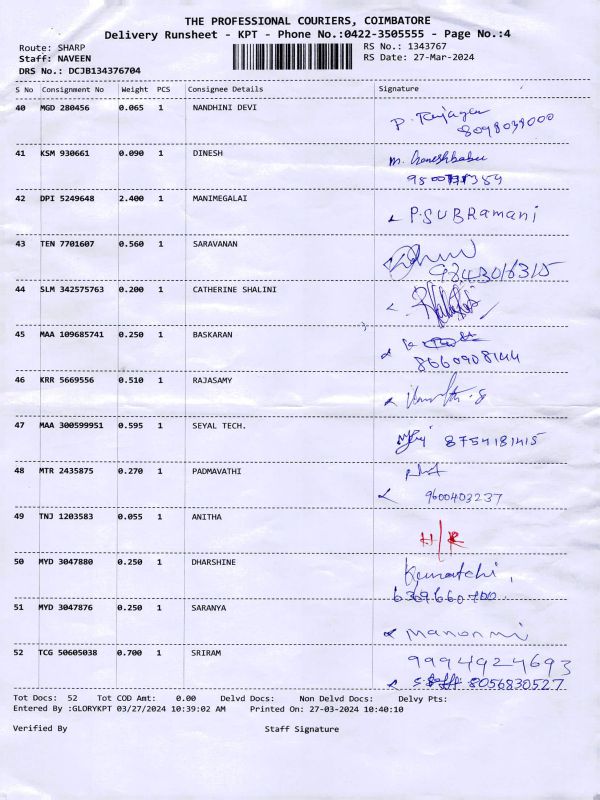 THE PROFESSIONAL COURIERS, COIMBATORE
Delivery Runsheet - KPT - Phone No.:0422-3505555 - Page No.:4
Route: SHARP
RS No.: 1343767
Staff: NAVEEN
RS Date: 27-Mar-2024
DRS No.: DCJB134376704
S No Consignment No Weight PCS Consignee Details Signature
40 MGD 280456 0.065 1 NANDHINI DEVI
8098039000
41 KSM 930661 0.090 1 DINESH
m. Ganeshbabu
42 DPI 5249648 2.400 1 MANIMEGALAI
P.SUBRamani
43 TEN 7701607 0.560 1 SARAVANAN
9843016315
44 SLM 342575763 0.200 1 CATHERINE SHALINI
45 MAA 109685741 0.250 1 BASKARAN
8660908144
46 KRR 5669556 0.510 1 RAJASAMY
47 MAA 300599951 0.595 1 SEYAL TECH.
8754181415
48 MTR 2435875 0.270 1 PADMAVATHI
9600403237
49 TNJ 1203583 0.055 1 ANITHA
50 MYD 3047880 0.250 1 DHARSHINE
Kamatchi,
6369660700
51 MYD 3047876 0.250 1 SARANYA
52 TCG 50605038 0.700 1 SRIRAM
9994924693
8056830527
Tot Docs: 52 Tot COD Amt: 0.00 Delvd Docs: Non Delvd Docs: Delvy Pts:
Entered By :GLORYKPT 03/27/2024 10:39:02 AM Printed On: 27-03-2024 10:40:10
Verified By Staff Signature